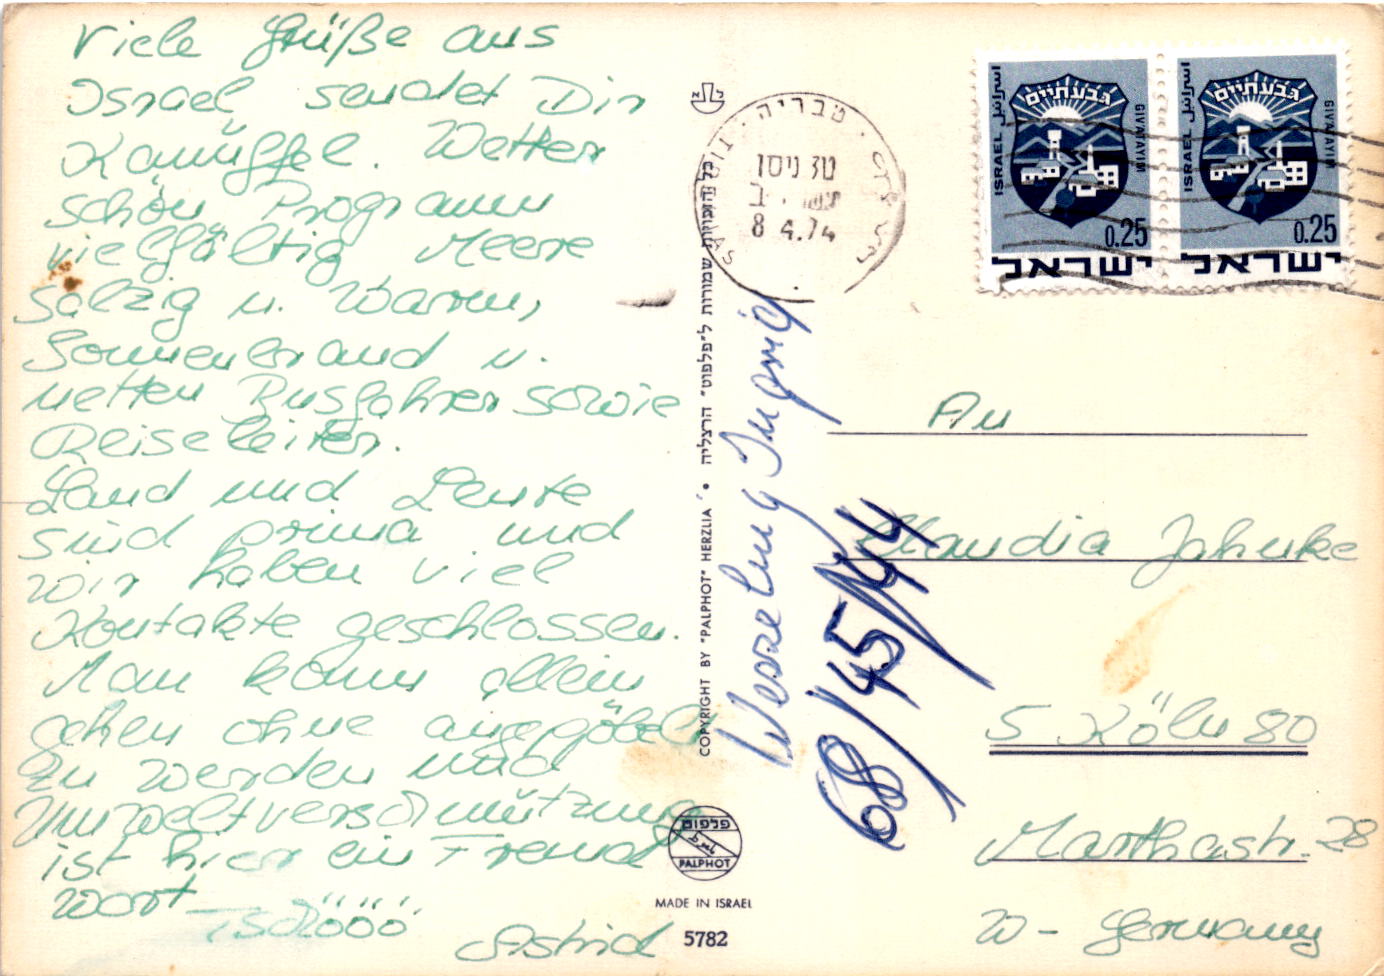 Viele Grüße aus
Israel, sendet Dir
Kanüffel. Wetter
schön Programm
vielfältig Meere
salzig u. Warm,
Sonnenbrand u.
netten Busfahrer sowie
Reiseleiter.
Land und Leute
sind prima und
wir haben viel
Kontakte geschlossen.
Man kann allein
gehen ohne angepöbelt
zu werden und
Umweltverschmützung
ist hier ein Fremd
wort
Tschööö
Astrid
כל הזכויות שמורות ל״פלפוט״ הרצליה
COPYRIGHT BY "PALPHOT" HERZLIA
פלפוט
PALPHOT
MADE IN ISRAEL
5782
טבריה
8 4.74
ISRAEL اسرائيل
גבעתיים
GIVATAYIM
0.25
ישראל
ISRAEL اسرائيل
גבעתיים
GIVATAYIM
0.25
ישראל
Ingrid
68/45
An
Klaudia Jahnke
5 Köln 80
Marthastr. 28
W- Germany